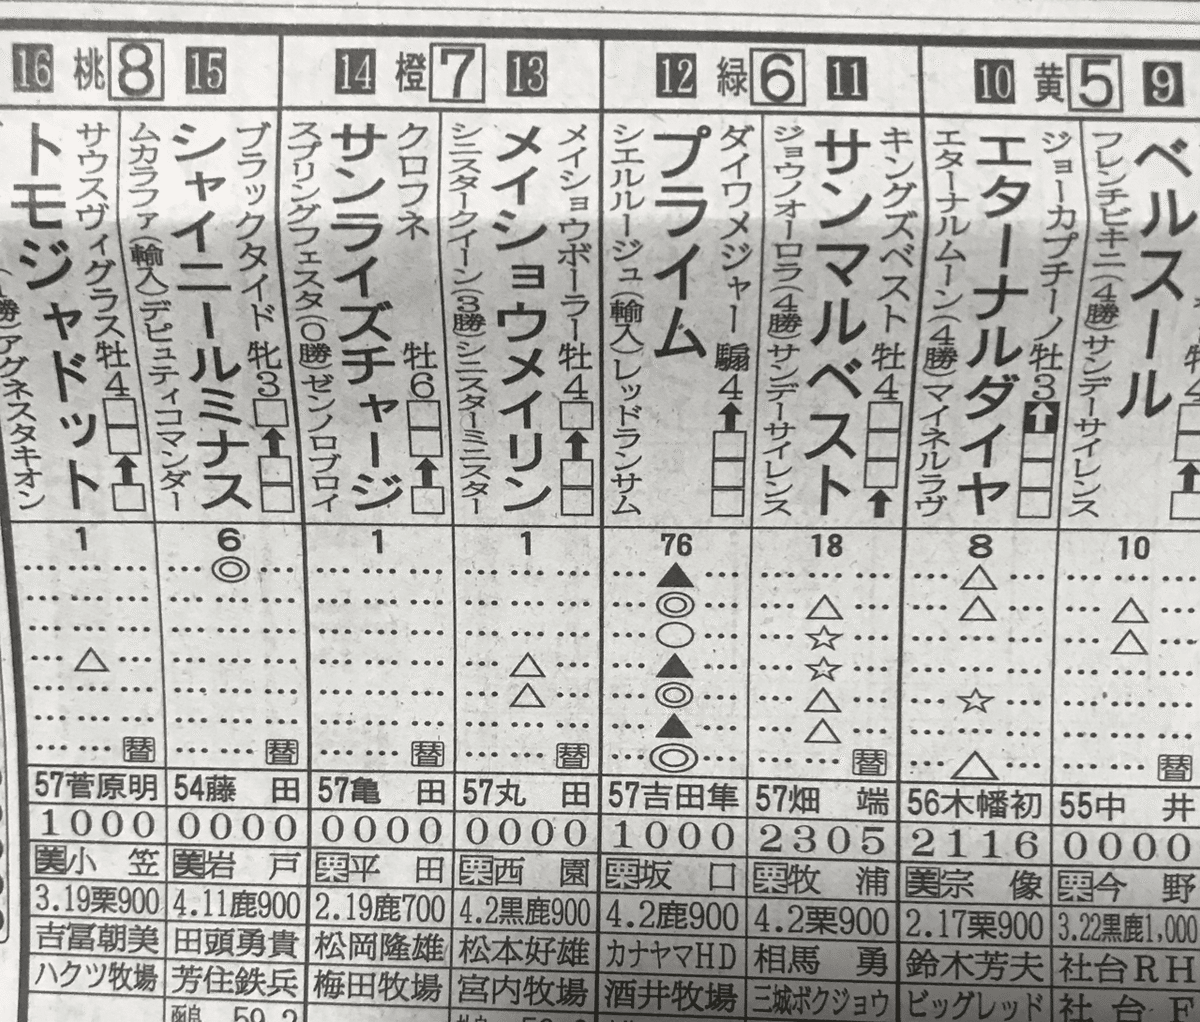 9
5
黄
10
11
6
緑
12
13
7
橙
14
15
8
桃
16
牡4
ベルスール
フレンチビキニ(4勝)サンデーサイレンス
ジョーカプチーノ 牡3
エターナルダイヤ
エターナルムーン(4勝)マイネルラヴ
キングズベスト 牡4
サンマルベスト
ジョウノオーロラ(4勝)サンデーサイレンス
ダイワメジャー 騸4
プライム
シエルルージュ(輸入)レッドランサム
メイショウボーラー 牡4
メイショウメイリン
シニスタークイーン(3勝)シニスターミニスター
クロフネ 牡6
サンライズチャージ
スプリングフェスタ(0勝)ゼンノロブロイ
ブラックタイド 牝3
シャイニールミナス
ムカラファ(輸入)デピュティコマンダー
サウスヴィグラス 牡4
トモジャドット
勝)アグネスタキオン
1 6 1 1 76 18 8 10
◎ ▲ △
◎ △ △ △
○ ☆ △
△ △ ▲ ☆
△ ◎ △ ☆
▲ △
替 替 替 替 ◎ 替 △ 替
57菅原明 54藤田 57亀田 57丸田 57吉田隼 57畑端 56木幡初 55中井
1000 0000 0000 0000 1000 2305 2116 0000
美小笠 美岩戸 栗平田 栗西園 栗坂口 栗牧浦 美宗像 栗今野
3.19栗900 4.11鹿900 2.19鹿700 4.2黒鹿900 4.2鹿900 4.2栗900 2.17栗900 3.22黒鹿1,000
吉冨朝美 田頭勇貴 松岡隆雄 松本好雄 カナヤマHD 相馬勇 鈴木芳夫 社台RH
ハクツ牧場 芳住鉄兵 梅田牧場 宮内牧場 酒井牧場 三城ボクジョウ ビッグレッド 社台F
59.2